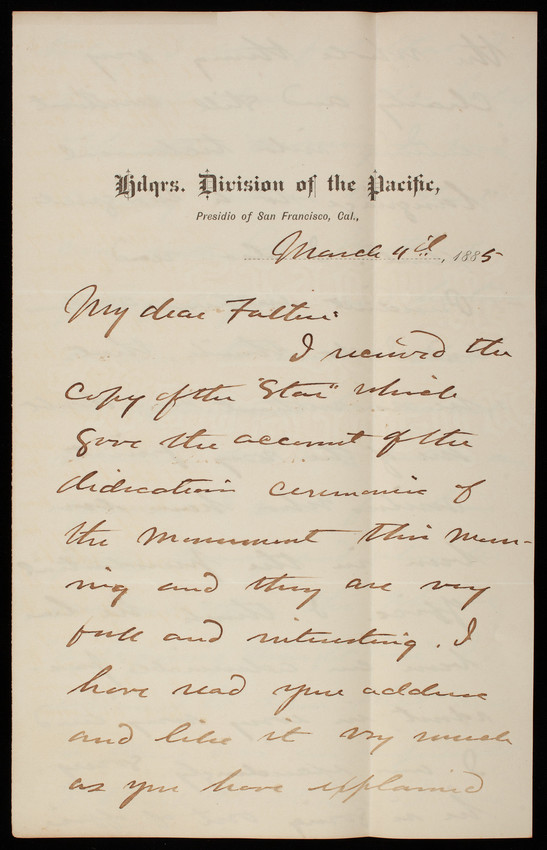 Hdqrs. Division of the Pacific,
Presidio of San Francisco, Cal.,
March 4th, 1885
My dear Father:
I received the
copy of the "Star" which
gave the account of the
dedication ceremonies of
the monument this morn-
ing and they are very
full and interesting. I
have read your address
and like it very much
as you have explained